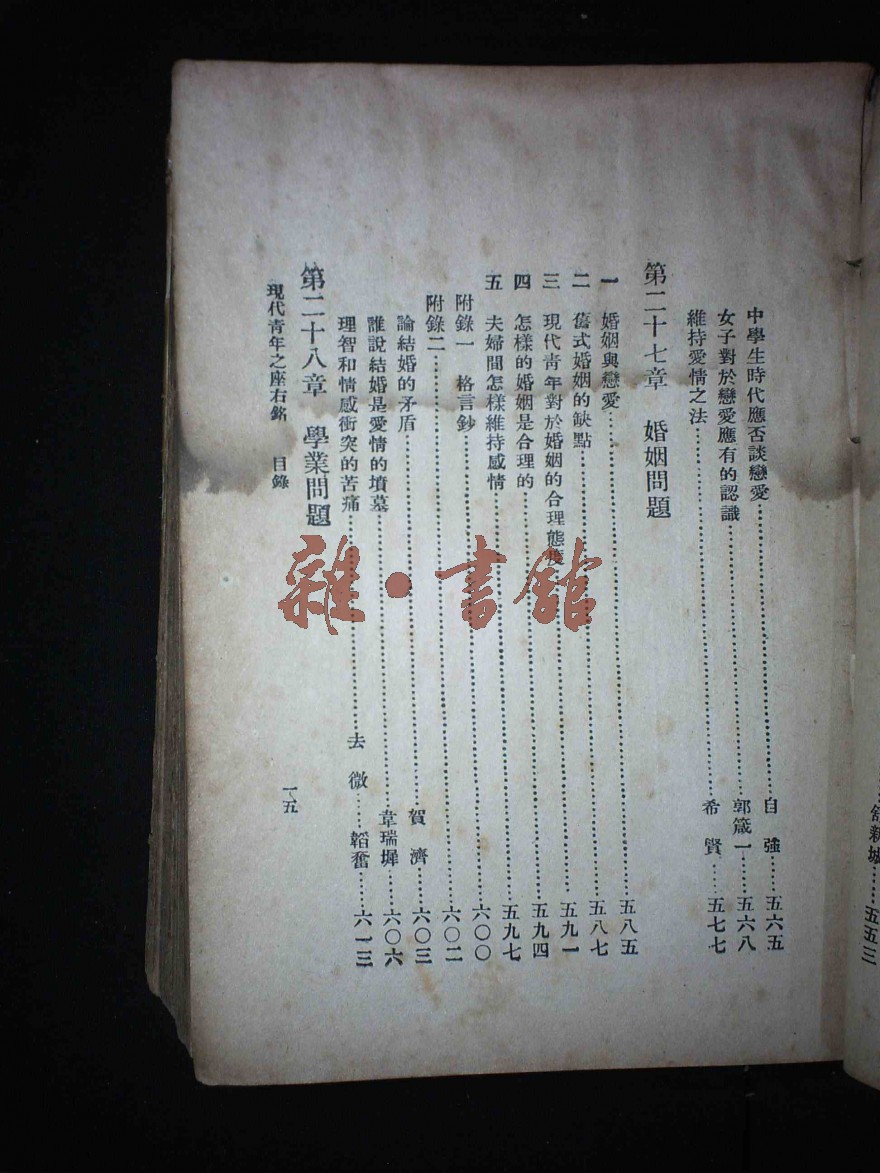 中學生時代應否談戀愛……自 強……五六五
女子對於戀愛應有的認識……郭箴一……五六八
維持愛情之法……希 賢……五七七
第二十七章 婚姻問題
一 婚姻與戀愛……五八五
二 舊式婚姻的缺點……五八七
三 現代靑年對於婚姻的合理態度……五九一
四 怎樣的婚姻是合理的……五九四
五 夫婦間怎樣維持感情……五九七
附錄一 格言鈔……六〇〇
附錄二……六〇二
論結婚的矛盾……賀 濟……六〇三
誰說結婚是愛情的墳墓……韋瑞墀……六〇六
理智和情感衝突的苦痛……去 微……韜奮……六一三
第二十八章 學業問題
現代靑年之座右銘 目錄
一五
舒新城……五五三
雜·書館